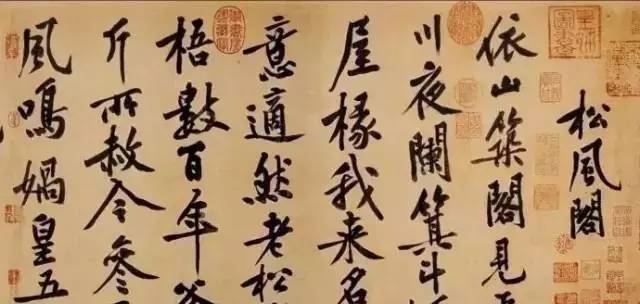 松風閣
依山築閣見
川夜闌箕斗
屋椽我来名
意適然老松
梧數百年
斤所赦今參
風鳴媧皇五